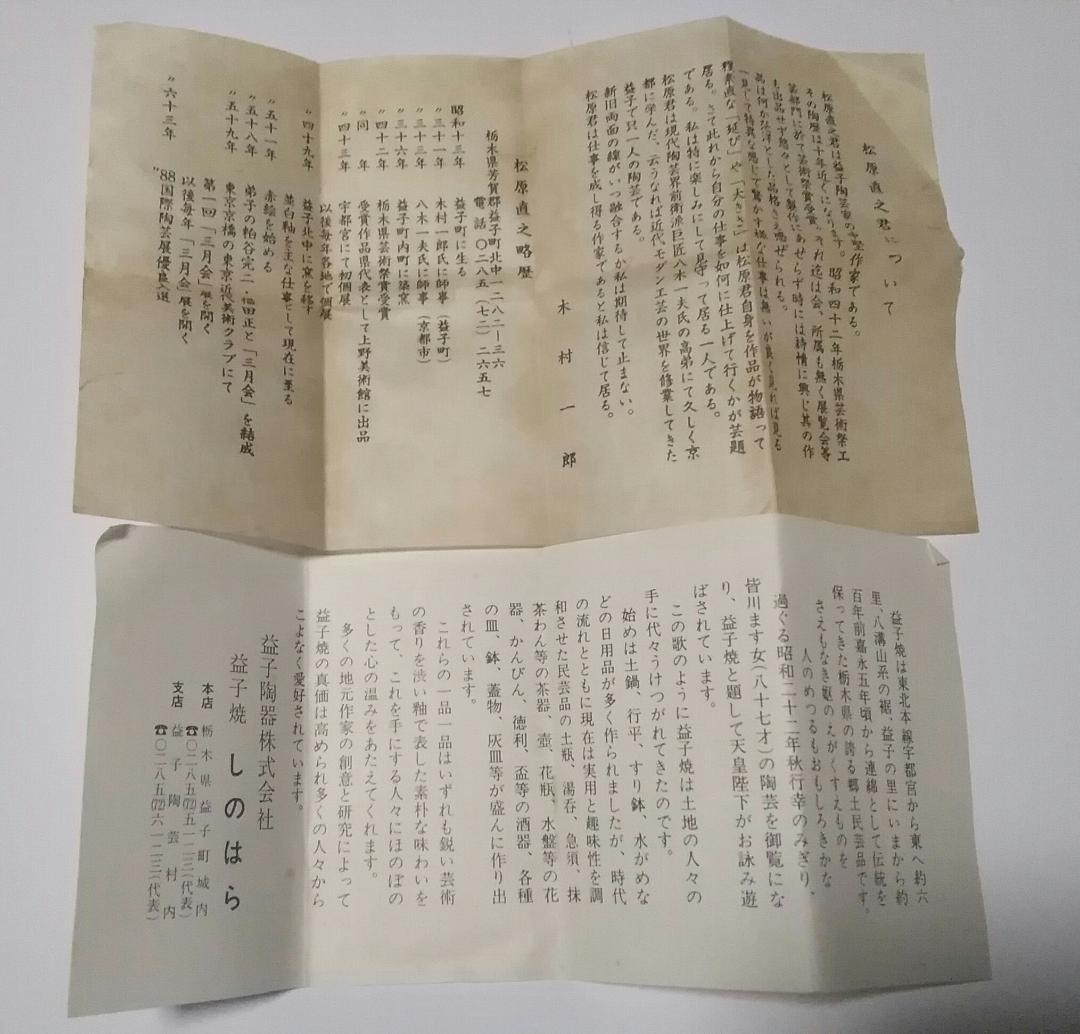 松原直之君について
松原直之君は益子陶芸家の中堅作家である。
その陶歴は十年近くになります。昭和四十二年栃木県芸術祭工
芸部門に於て芸術祭賞受賞、それ迄は会、所属も無く展覧会等
も出品せず悠々として製作にあせらず時には詩情に興じ其の作
品は何か泛洋とした品格さえ感ぜられる。
一見して特異な感じで驚かす様な仕事は無いが良く見れば見る
程素直な「延び」や「大きさ」は松原君自身を作品が物語って
居る。さて此れから自分の仕事を如何に仕上げて行くかが芸題
である。私は特に楽しみにして見守って居る一人である。
松原君は現代陶芸界前衛派巨匠八木一夫氏の高弟にて久しく京
都に学んだ、云うなれば近代モダン工芸の世界を修業してきた
益子で只一人の陶芸である。
新旧両面の線がいつ融合するか私は期待して止まない。
松原君は仕事を成し得る作家であると私は信じて居る。
木村一郎
松原直之略歴
栃木県芳賀郡益子町北中一二八二ー三六
電話 〇二八五(七二)二六五七
昭和十三年 益子町に生る
〃三十一年 木村一郎氏に師事(益子町)
〃三十三年 八木一夫氏に師事(京都市)
〃三十六年 益子町内町に築窯
〃四十二年 栃木県芸術祭賞受賞
〃同 年 受賞作品県代表として上野美術館に出品
〃四十三年 宇都宮にて初個展
以後毎年各地で個展
〃四十九年 益子北中に窯を移す
並白釉を主な仕事として現在に至る
〃五十一年 赤絵を始める
〃五十八年 弟子の粕谷完二・福田正と「三月会」を結成
〃五十九年 東京京橋の東京近代美術クラブにて
第一回「三月会」展を開く
以後毎年「三月会」展を開く
〃六十三年 "88国際陶芸展優良入選
益子焼は東北本線宇都宮から東へ約六
里、八溝山系の裾、益子の里にいまから約
百年前嘉永五年頃から連綿として伝統を
保ってきた栃木県の誇る郷土民芸品です。
さえもなき嫗のえがくすえものを
人のめつるもおもしろきかな
過ぐる昭和二十二年秋行幸のみぎり、
皆川ます女(八十七才)の陶芸を御覧にな
り、益子焼と題して天皇陛下がお詠み遊
ばされています。
この歌のように益子焼は土地の人々の
手に代々うけつがれてきたのです。
始めは土鍋、行平、すり鉢、水がめな
どの日用品が多く作られましたが、時代
の流れとともに現在は実用と趣味性を調
和させた民芸品の土瓶、湯呑、急須、抹
茶わん等の茶器、壺、花瓶、水盤等の花
器、かんびん、徳利、盃等の酒器、各種
の皿、鉢、蓋物、灰皿等が盛んに作り出
されています。
これらの一品一品はいずれも鋭い芸術
の香りを渋い釉で表した素朴な味わいを
もって、これを手にする人々にほのぼの
とした心の温みをあたえてくれます。
多くの地元作家の創意と研究によって
益子焼の真価は高められ多くの人々から
こよなく愛好されています。
益子陶器株式会社
益子焼 しのはら
本店 栃木県益子町城内
☎〇二八五(72)五一二三(代表)
支店 益子陶芸村内
☎〇二八五(72)六一二三(代表)